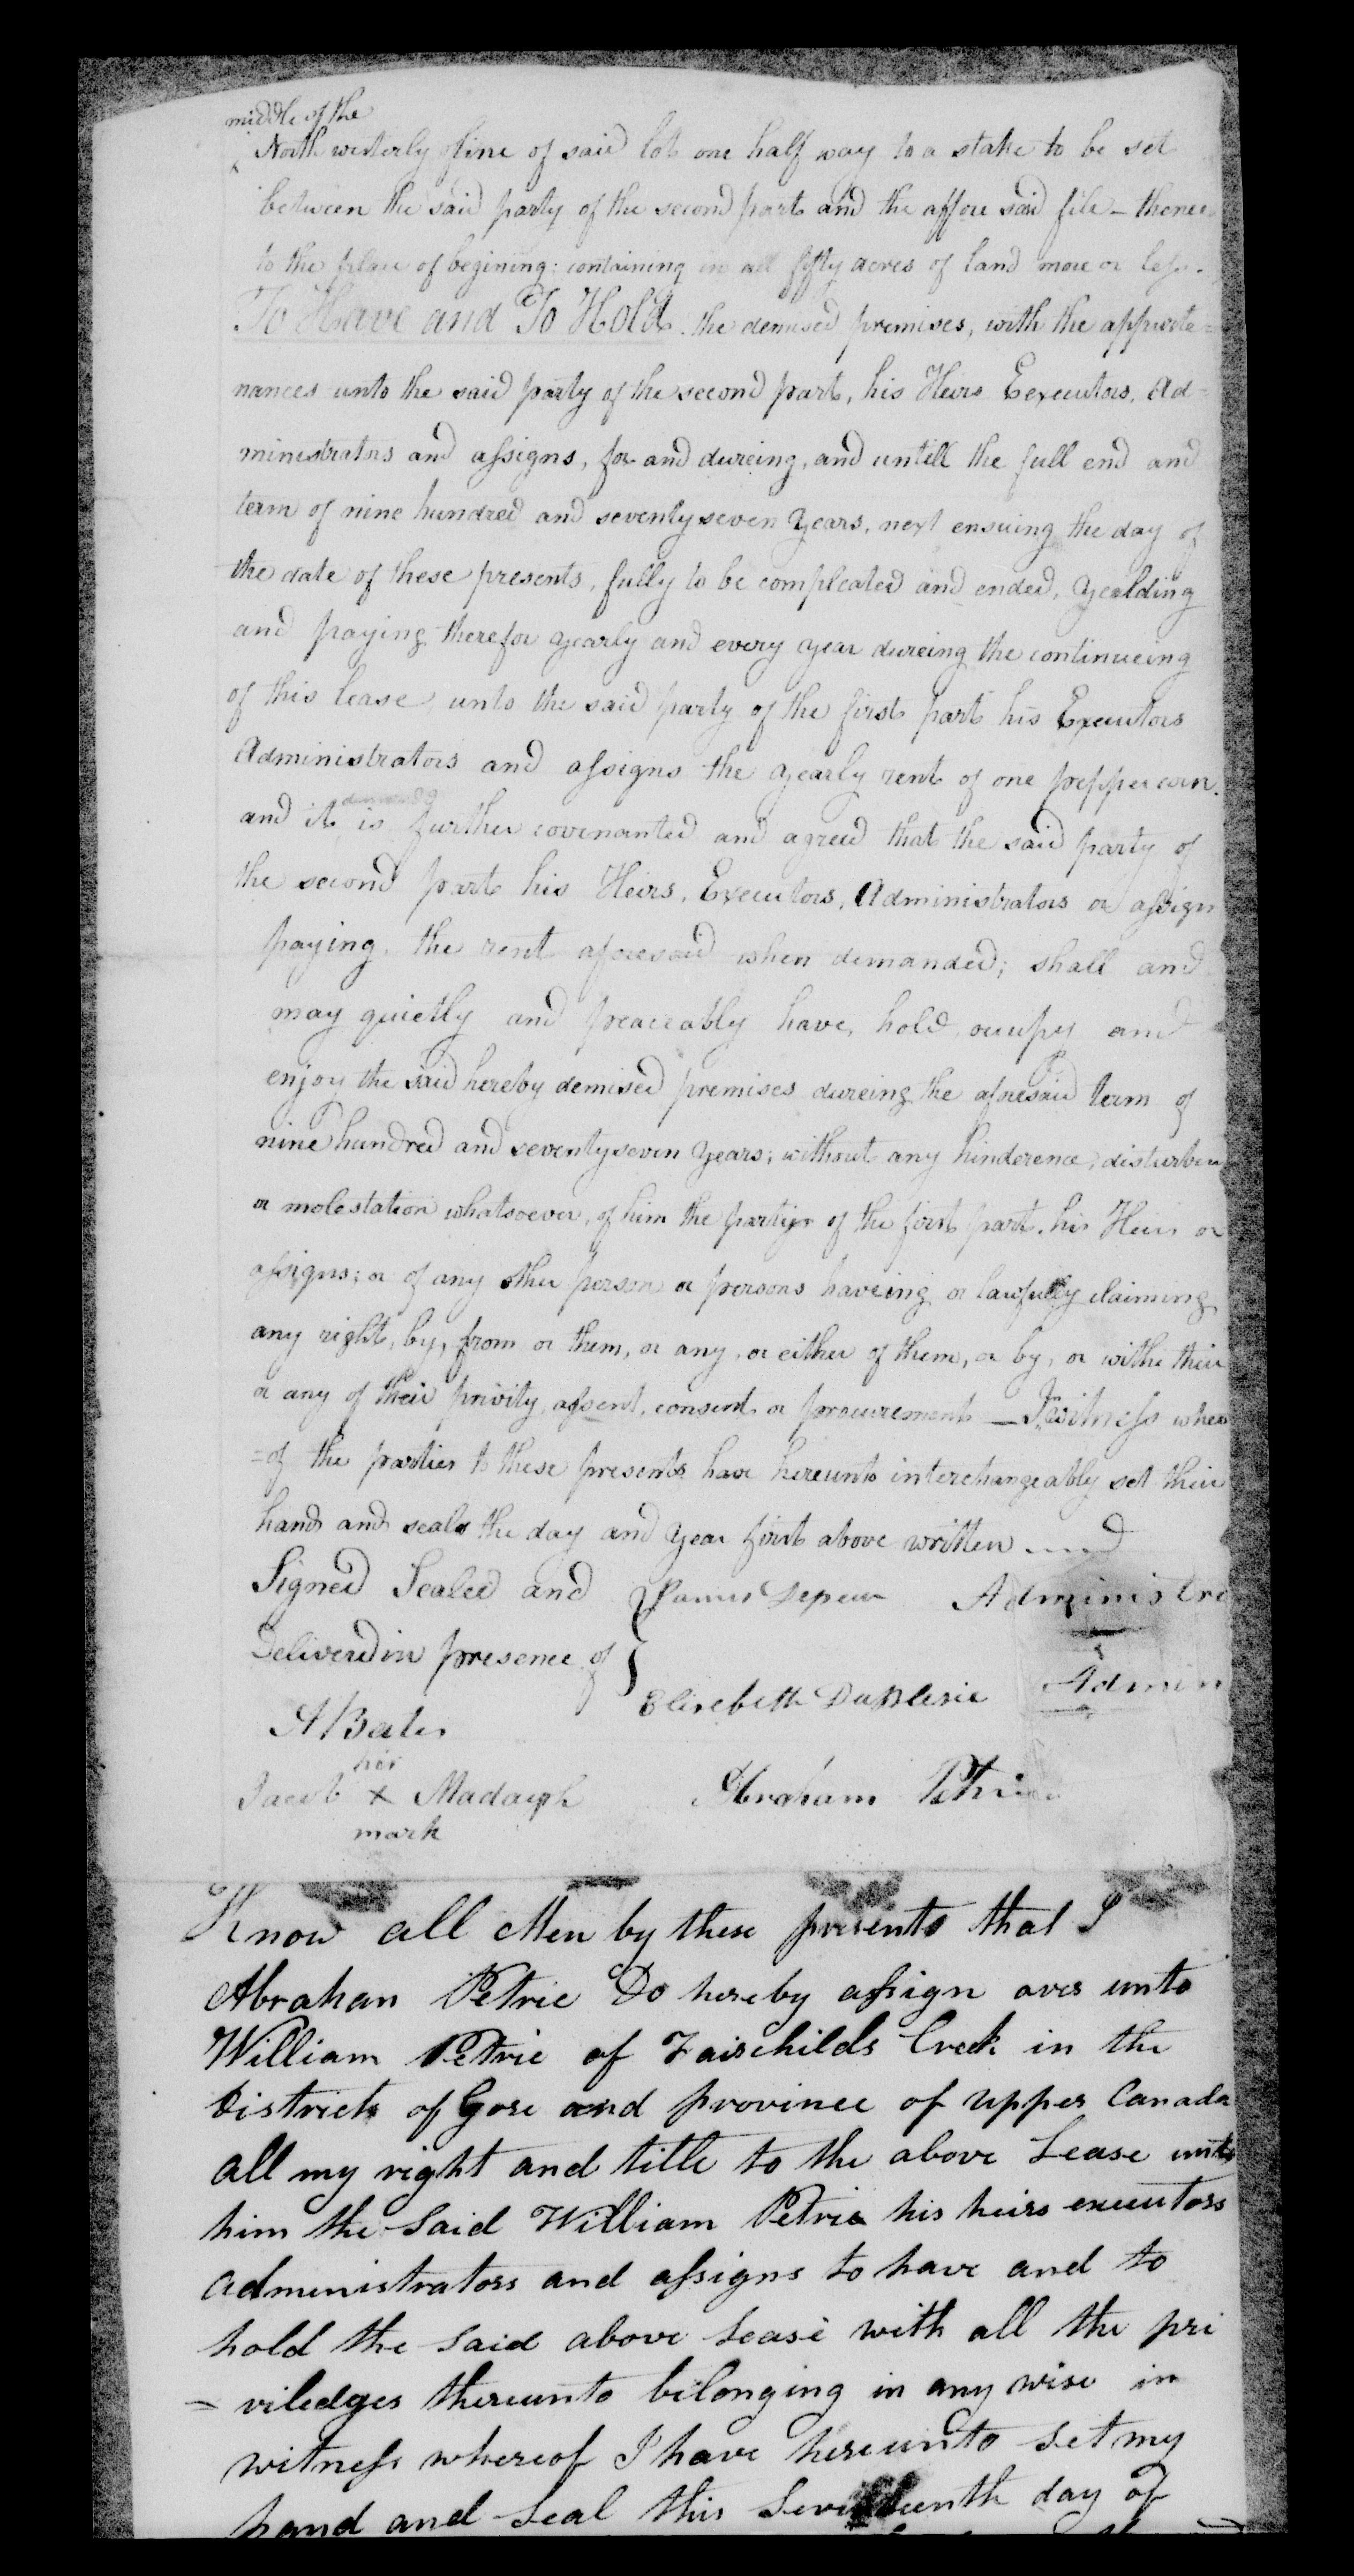 middle of the
North westerly line of said lot one half way to a stake to be set
between the said party of the second part and the affore said file - thence
to the place of begining: containing in all fifty acres of land more or less.
To Have and To Hold. the demised premises, with the appurte=
nances unto the said party of the second part, his Heirs Eexecutors, Ad=
ministrators and assigns, for and dureing, and untill the full end and
term of nine hundred and seventy seven years, next ensuing the day of
the date of these presents, fully to be compleated and ended, yealding
and paying therefor yearly and every year dureing the continueing
of this lease, unto the said party of the first part his Executors
Administrators and assigns the yearly rent of one peppercorn.
and it is further covenanted and agreed that the said party of
the second part his Heirs, Executors, Administrators or assign
paying. the rent aforesaid when demanded; shall and
may quietly and peaceably have, hold, occupy and
enjoy the said hereby demised premises dureing the aforesaid term of
nine hundred and seventy seven years; without any hinderence, disturben
or molestation whatsoever, of him the party of the first part, his Heirs or
assigns; or of any other person or persons haveing or lawfully claiming
any right, by, from or them, or any, or either of them, or by, or withe their
or any of their privity, assent, consent or procurement — In witness wher
=of the parties to these presents have hereunto interchangeably set their
hands and seals the day and year first above written
Signed Sealed and } James Depew Administra
Deliverd in presence of }
Elisebeth Admin
A Bates
his
Jacob x Abraham Petrie
mark
Know all Men by these presents that I
Abrahan Petrie Do hereby assign over unto
William Petrie of Fairchilds Creek in the
District of Gore and province of upper Canada
all my right and title to the above Lease unto
him the Said William Petrie his heirs executors
administrators and assigns to have and to
hold the said above Lease with all the pri
= viledges thereunto belonging in any wise in
witness whereof I have hereunto Set my
hand and Seal this Seventeenth day of